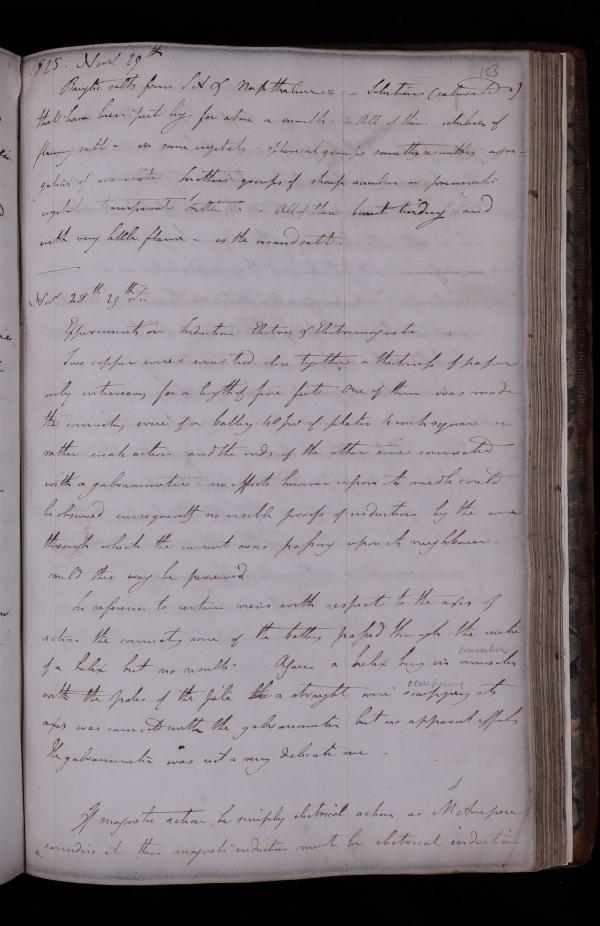 103
1825. Novr. 29th
Barytic salts from S A & Napthaline - Solutions (saturated)
that have been put by for above a month - All of these solutions of
flaming salt - in some crystals - spherical groups something resembling aggre-
gations of wavellite
crystals transparent brittle - All of these burnt tindery and
with very little flame - is the second salt.
Nov. 28th 29th &c.
Experiments on Induction Electric & Electromagnetic
Two copper wires were tied close together a thickness of paper
only intervening for a length of five feet One of them was made
the connecting wire for battery 40 pr of plates 4 inch square in
rather weak action and the ends of the other were connected
with a galvanometer no effects however upon its needle could
be observed consequently no visible proofs of induction by the wire
through which the current was passing upon its neighbour
could this way be perceived
In reference to certain views with respect to the axes of
action the connecting wire of the battery passed through the centre
of a helix but no results - Again a helix being in connection
connection
with the poles of the pile a straight wire occupying its
occupying
axes was connected with the galvanometer but no apparent effects
The galvanometer was not a very delicate one -
If magnetic action be simply electrical action as M. Ampere
considers it then magnetic induction must be electrical induction